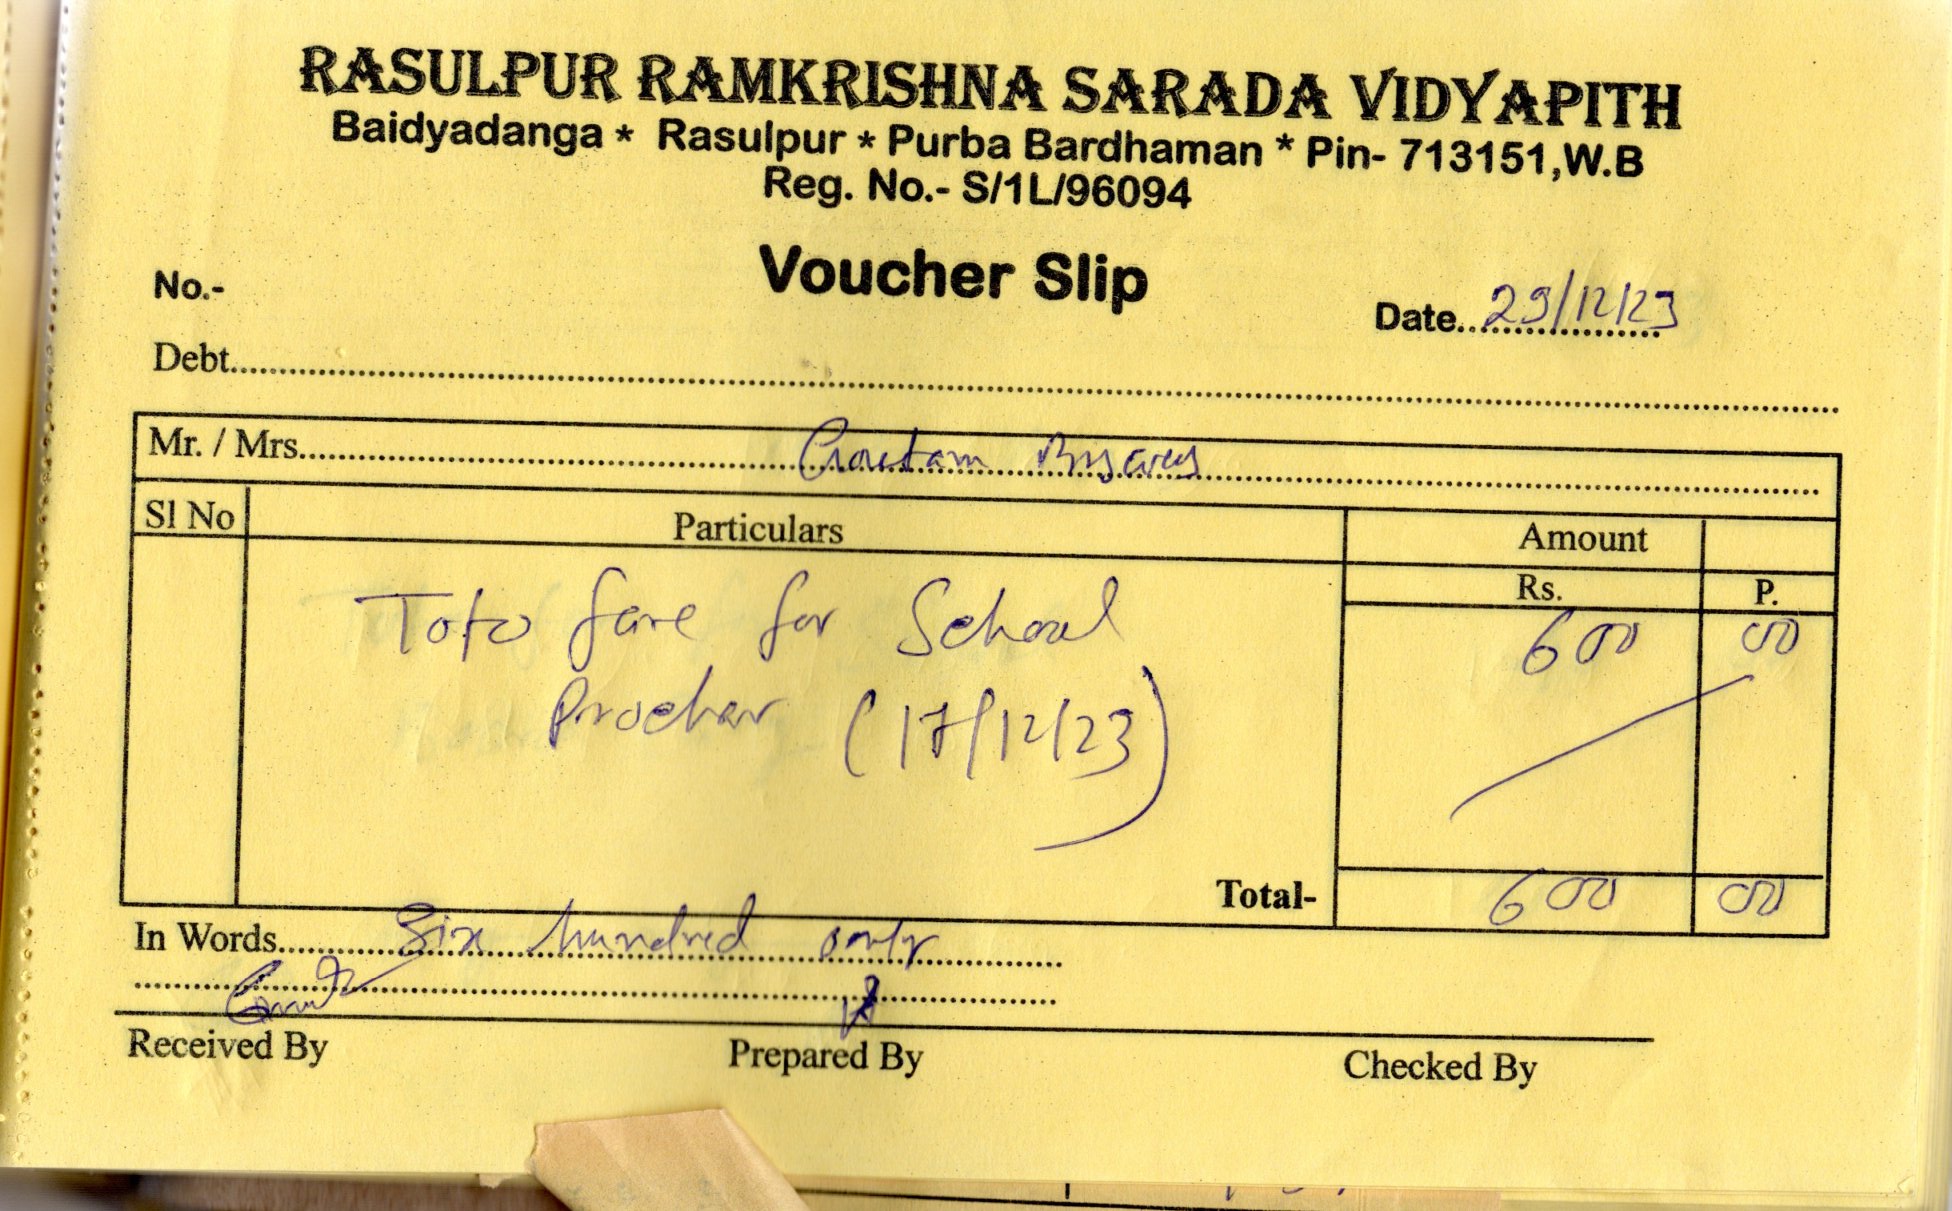 RASULPUR RAMKRISHNA SARADA VIDYAPITH
Baidyadanga * Rasulpur * Purba Bardhaman * Pin- 713151,W.B
Reg. No.- S/1L/96094
Voucher Slip
No.-
Date. 29/12/23
Debt
Mr. / Mrs. Goutam
Sl No Particulars Amount
Rs. P.
Toto fare for School 600 00
Prochar (17/12/23)
Total- 600 00
In Words. Six hundred only
Received By Prepared By Checked By